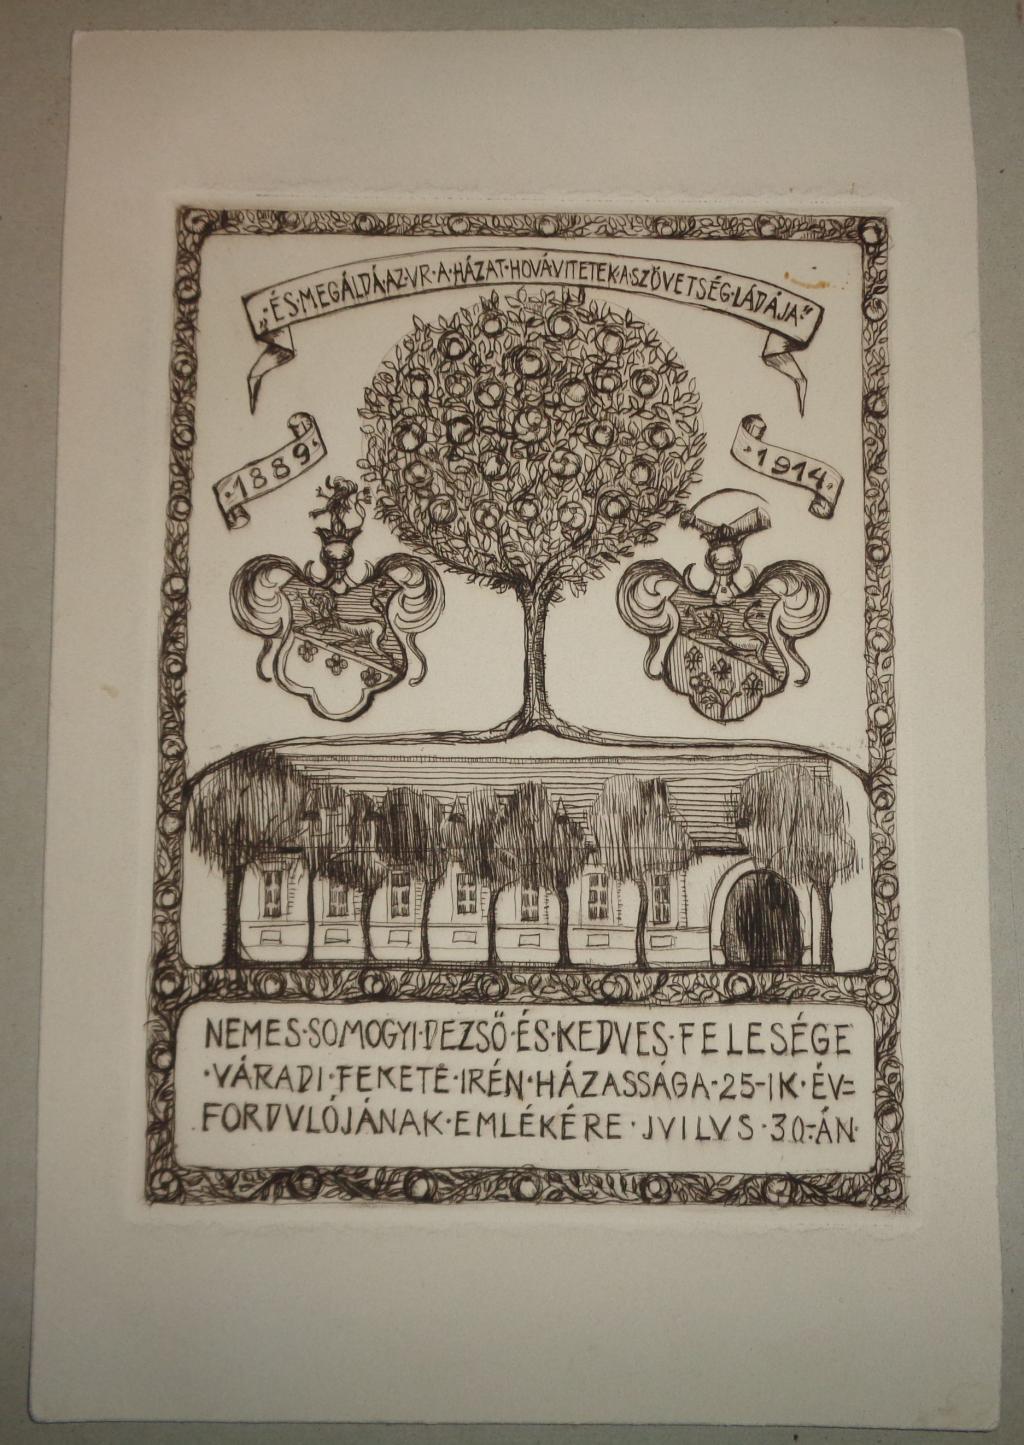 „ÉS·MEGÁLDÁ·AZ·VR·A·HÁZAT·HOVÁVITETEK·A·SZÖVETSÉG·LÁDÁJA"
·1889·
·1914·
NEMES·SOMOGYI·DEZSŐ·ÉS·KEDVES·FELESÉGE
·VÁRADI·FEKETE·IRÉN·HÁZASSÁGA·25-IK·ÉV=
FORDVLÓJÁNAK·EMLÉKÉRE·JVILVS·30-ÁN·